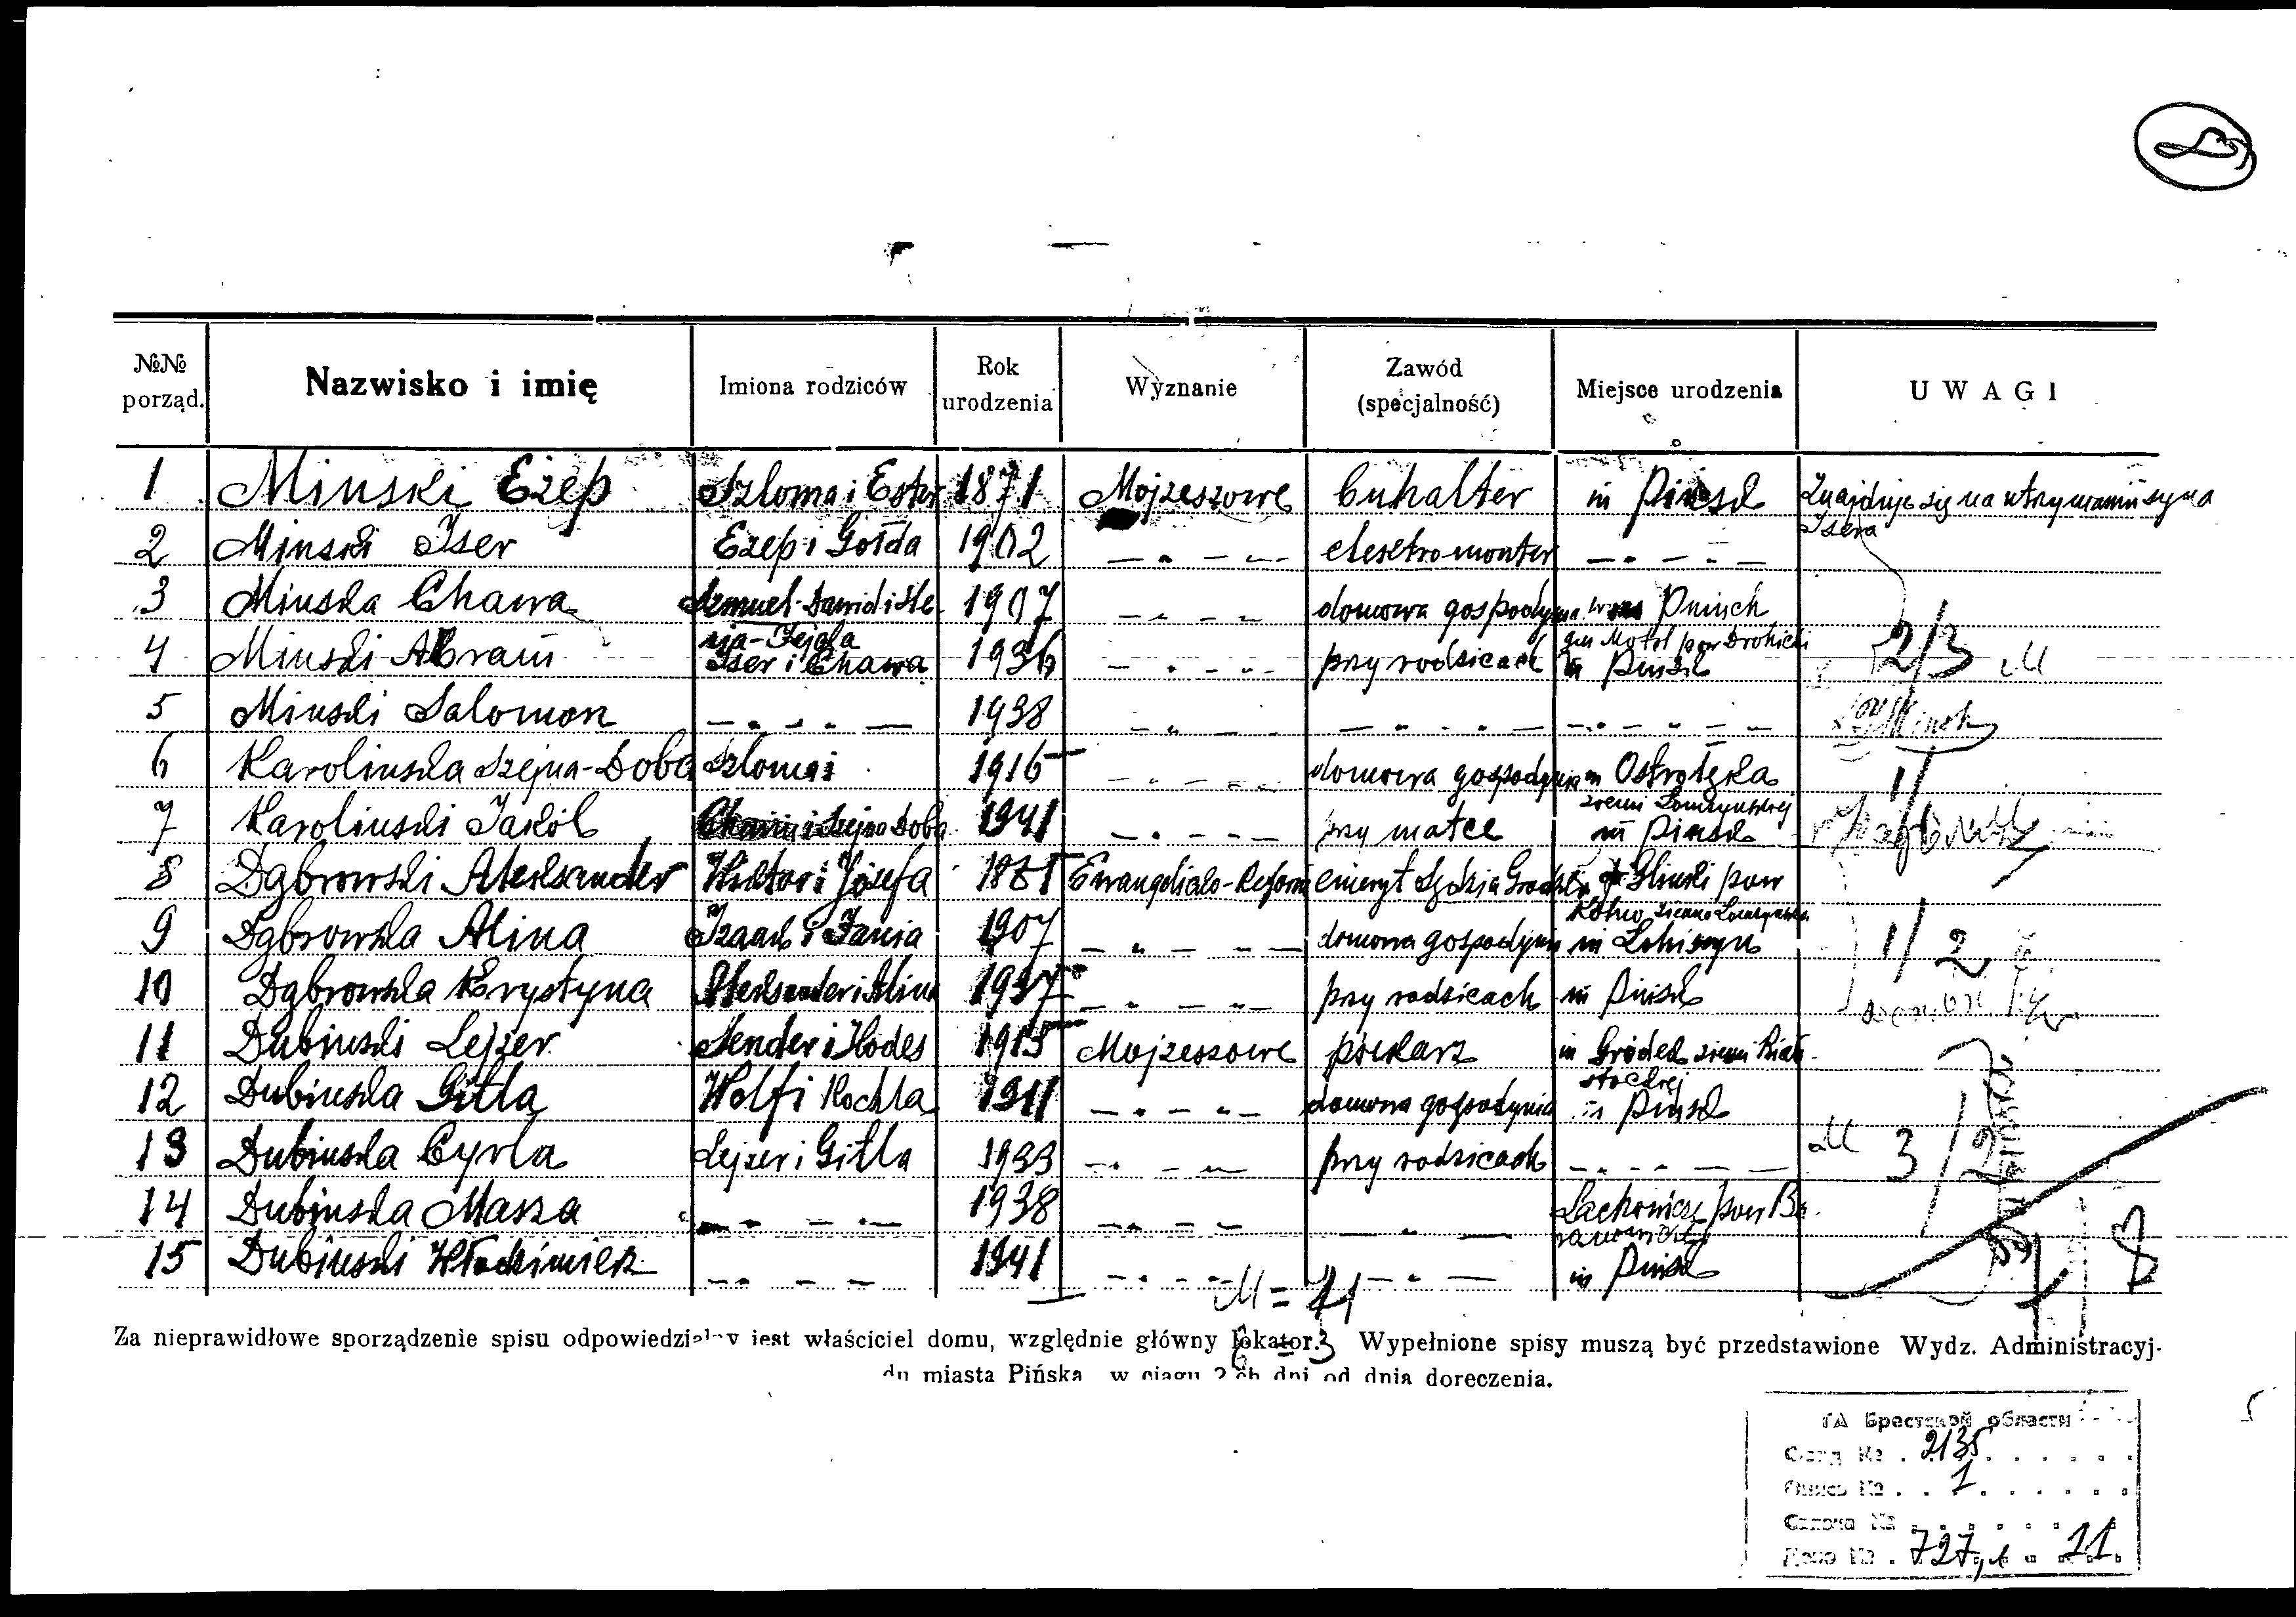 №№ porząd. Nazwisko i imię Imiona rodziców Rok urodzenia Wyznanie Zawód (specjalność) Miejsce urodzenia UWAGI
1 Minski Ezep Szloma i Ester 1871 Mojzeszowe buhalter m Pinsk Znajduje się na utrzymaniu syna Isera
2 Minski Iser Ezep i Gołda 1902 — „ — „ — elektromonter — „ — „ —
3 Minska Chawa Szmuel-Dawid i Ste- 1907 — „ — „ — domowa gospodynia wies Pninch
nja-Fejgla gm Motol pow Drohicki
4 Minski Abram Iser i Chawa 1936 — „ — „ — przy rodzicach m Pinsk 2/3 M
5 Minski Salomon — „ — „ — 1938 — „ — — „ — „ — — „ — „ —
6 Karolinska Szejna-Doba Szloma i 1916 — „ — „ — domowa gospodynia m Ostrołęka 1/
ziemi Łomzynskiej
7 Karolinski Jakób Chaim i Szejna Doba 1941 — „ — „ — przy matce m Pinsk
8 Dąbrowski Aleksander Wiktor i Józefa 1881 Ewangelicko-Reform emeryt Sędzia Grodzki Glinki pow
Kolno ziemia Łomzynska
9 Dąbrowska Alina Izaak i Fania 1907 — „ — „ — domowa gospodyni m Lohiszyn 1/2
10 Dąbrowska Krystyna Aleksander i Alina 1937 — „ — „ — przy rodzicach m Pinsk
11 Dubinski Lejzer Sender i Hodes 1915 Mojzeszowe piekarz m Gródek ziemi Biało-
stockiej
12 Dubinska Gitla Wolf i Rochla 1911 — „ — „ — domowa gospodynia m Pinsk
13 Dubinska Cyrla Lejzer i Gitla 1933 — „ — „ — przy rodzicach — „ — „ — M 3/2
14 Dubinska Masza — „ — „ — 1938 — „ — „ — — „ — Lachowicze pow Ba-
ranowicki
15 Dubinski Włodzimierz — „ — „ — 1941 — „ — „ — — „ — m Pinsk
M = 11
Za nieprawidłowe sporządzenie spisu odpowiedzialny jest właściciel domu, względnie główny lokator. Wypełnione spisy muszą być przedstawione Wydz. Administracyj-
du miasta Pińska w ciągu 2 ch dni od dnia doręczenia.
ГА Брестской области
Фонд № 2135
Опись № 1
Связка №
Дело № 727, л. 11